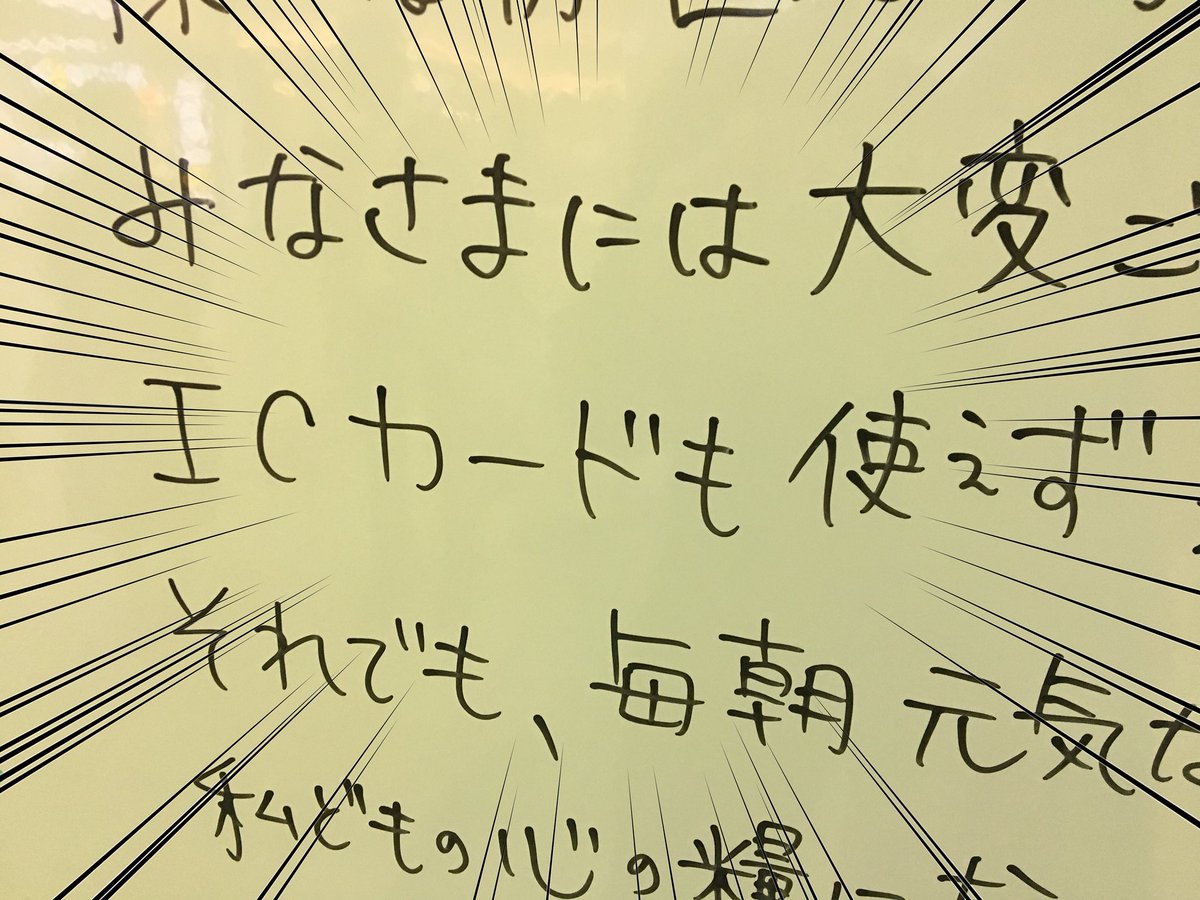 みなさまには大変ご
ICカードも使えず
それでも、毎朝元気な
私どもの心の糧に